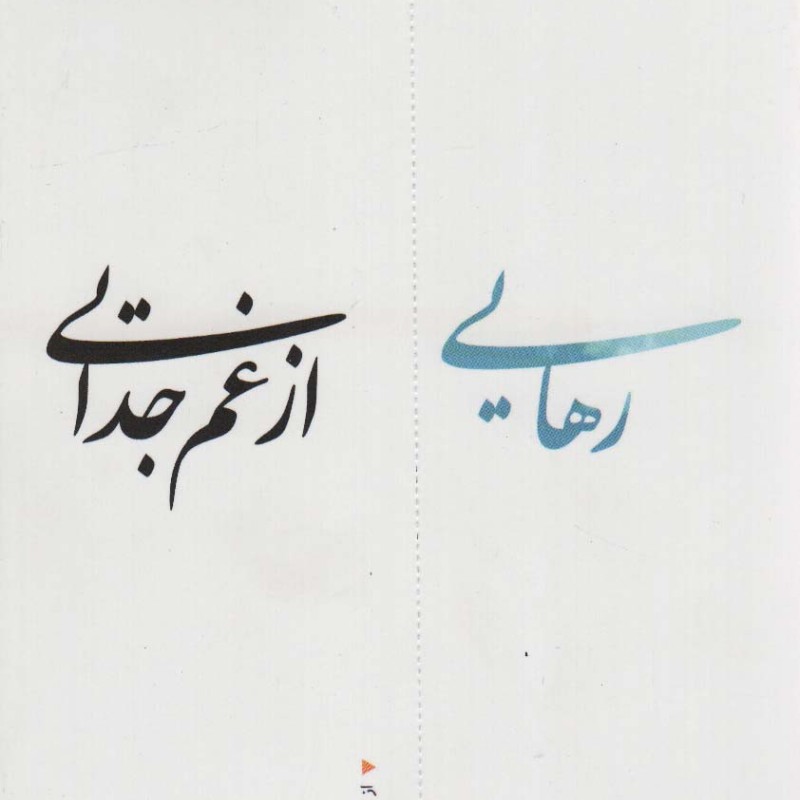 رهایی
از غم جدایی
از